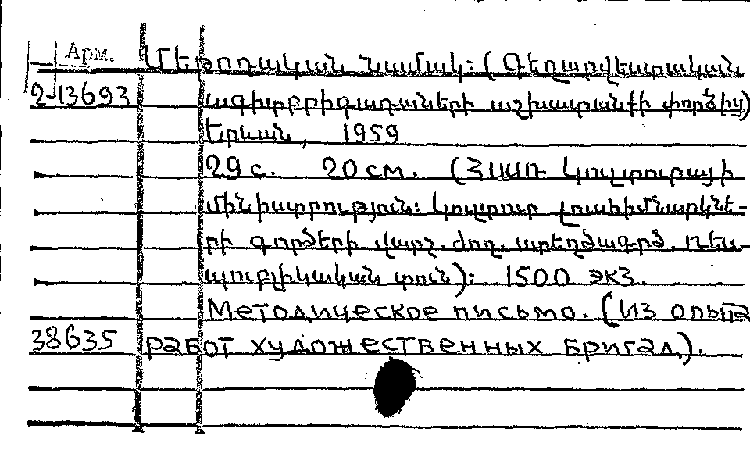 Арм. Մեթոդական նամակ: (Գեղարվեստական
2-13693 ագիտբրիգադաների աշխատանքի փորձից)
Երևան, 1959
29 с. 20 см. (ՀՍՍՌ Կուլտուրայի
մինիստրություն: Կուլտուր լուսհիմնարկնե-
րի գործերի վարչ. ժող. ստեղծագործ. Ռես-
պուբլիկական տուն): 1500 экз.
Методическое письмо. (Из опыта
38635 работ художественных бригад.).